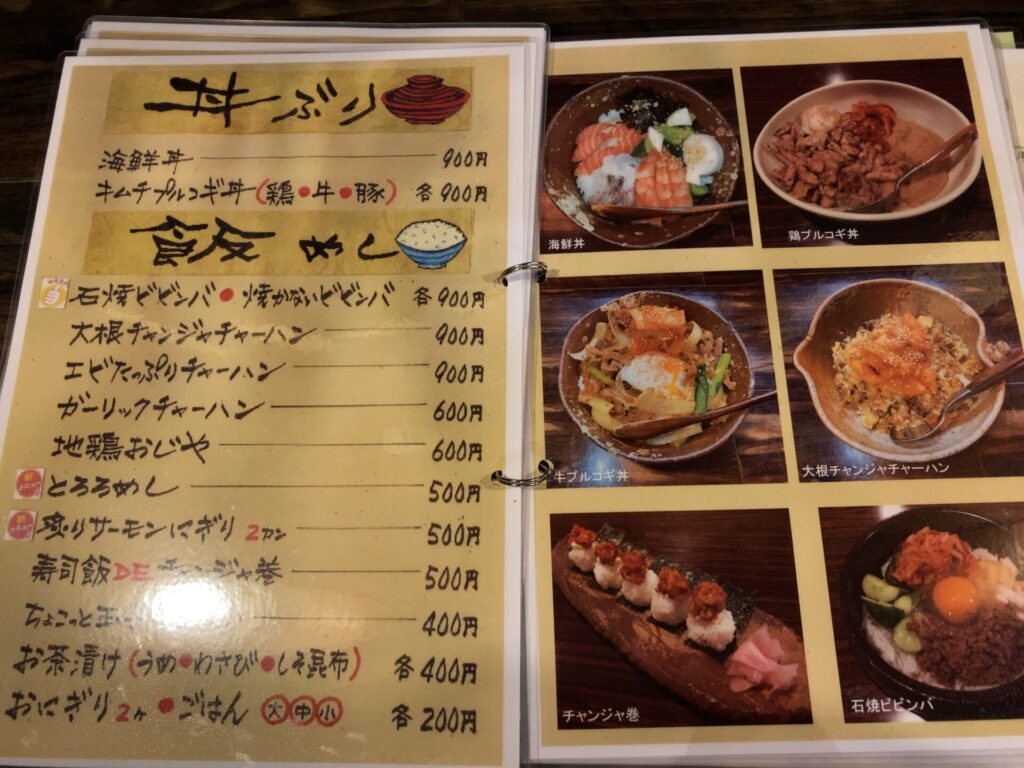 丼ぶり
海鮮丼 900円
キムチプルコギ丼(鶏・牛・豚) 各900円
飯 めし
石焼ビビンバ・焼かないビビンバ 各900円
大根チャンジャチャーハン 900円
エビたっぷりチャーハン 900円
ガーリックチャーハン 600円
地鶏おじや 600円
とろろめし 500円
炙りサーモンにぎり 2カン 500円
寿司飯DEチャンジャ巻 500円
ちょこっと 400円
お茶漬け(うめ・わさび・しそ昆布) 各400円
おにぎり2ヶ・ごはん 大中小 各200円
海鮮丼
鶏プルコギ丼
牛プルコギ丼
大根チャンジャチャーハン
チャンジャ巻
石焼ビビンバ